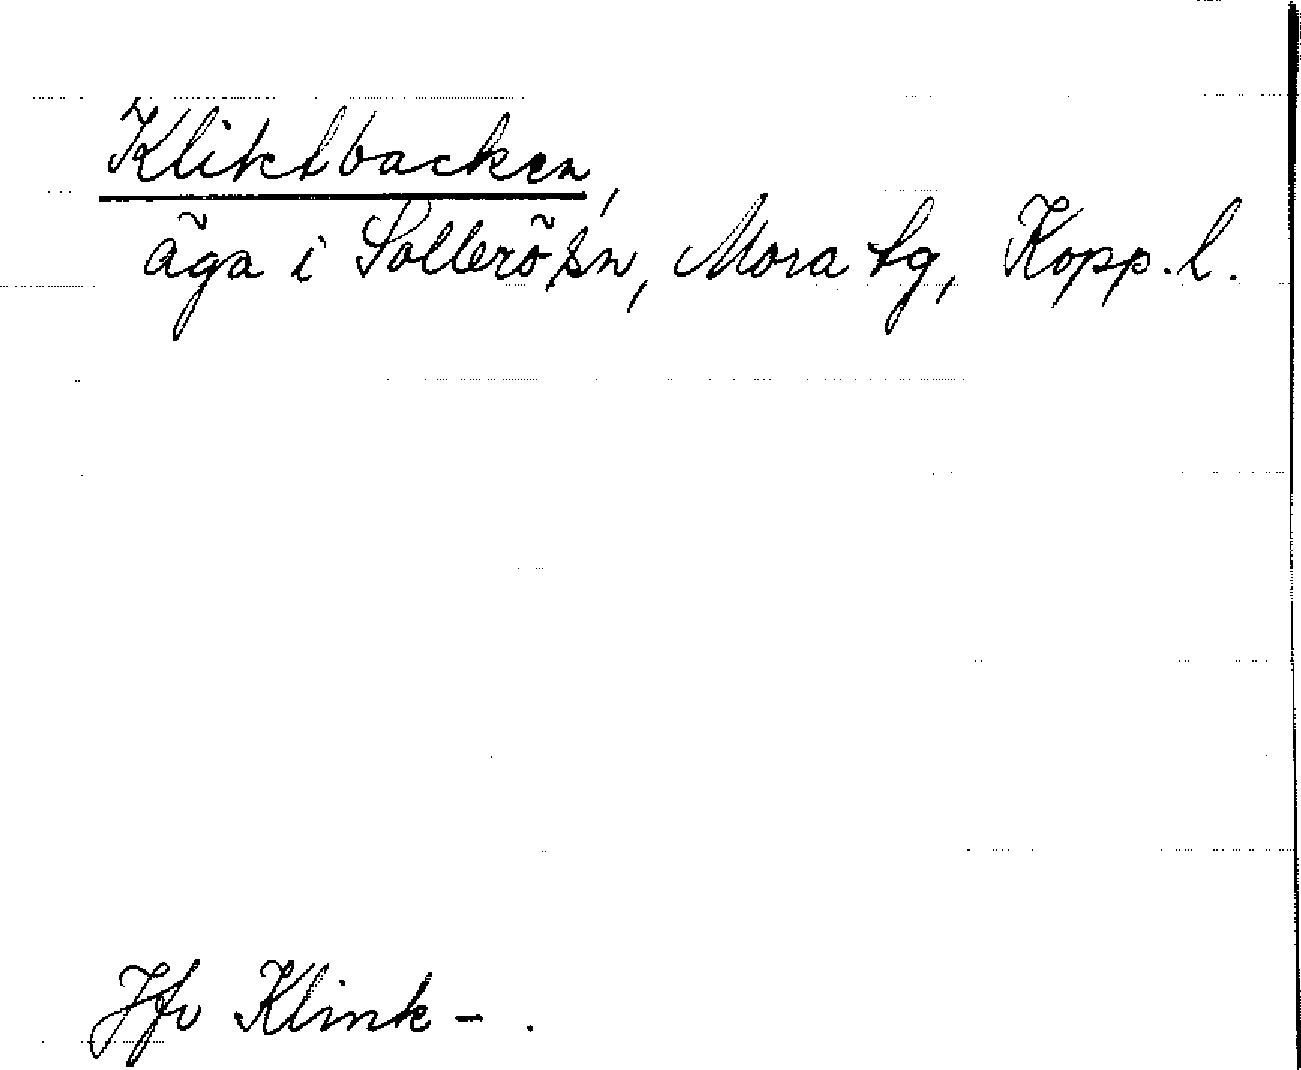 Kliktbacken,
äga i Sollerö sn, Mora tg, Kopp. l.
Jfr Klink- .